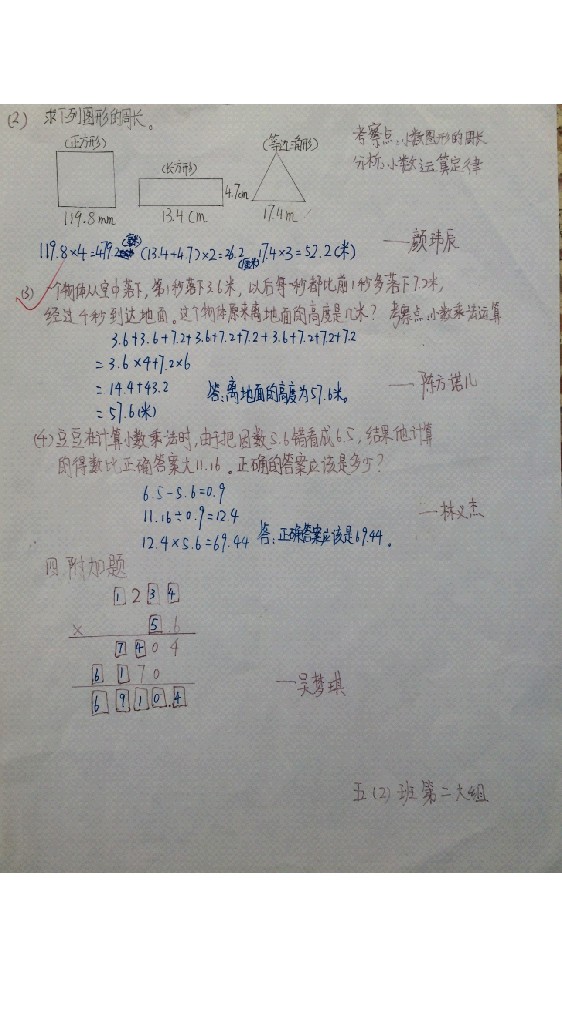 (2) 求下列图形的周长。
(正方形) (长方形) (等边三角形)
考察点:小数图形的周长
分析:小数运算定律
4.7cm
119.8mm 13.4cm 174m
119.8×4=479.2(毫米) (13.4+4.7)×2=36.2(厘米) 17.4×3=52.2(米)
——颜玮辰
(3) 一个物体从空中落下,第1秒落下3.6米,以后每一秒都比前1秒多落下7.2米,
经过4秒到达地面。这个物体原来离地面的高度是几米? 考察点:小数乘法运算
3.6+3.6+7.2+3.6+7.2+7.2+3.6+7.2+7.2+7.2
=3.6×4+7.2×6
=14.4+43.2
答:离地面的高度为57.6米。
=57.6(米)
——陈方诺儿
(4) 豆豆在计算小数乘法时,由于把因数5.6错看成6.5,结果他计算
的得数比正确答案大11.16。正确的答案应该是多少?
6.5-5.6=0.9
11.16÷0.9=12.4
12.4×5.6=69.44 答:正确答案应该是69.44。
——林义杰
四.附加题
1 2 3 4
× 5.6
7 4 0 4
6 1 7 0
6 9 1 0.4
——吴梦琪
五(2)班第二大组